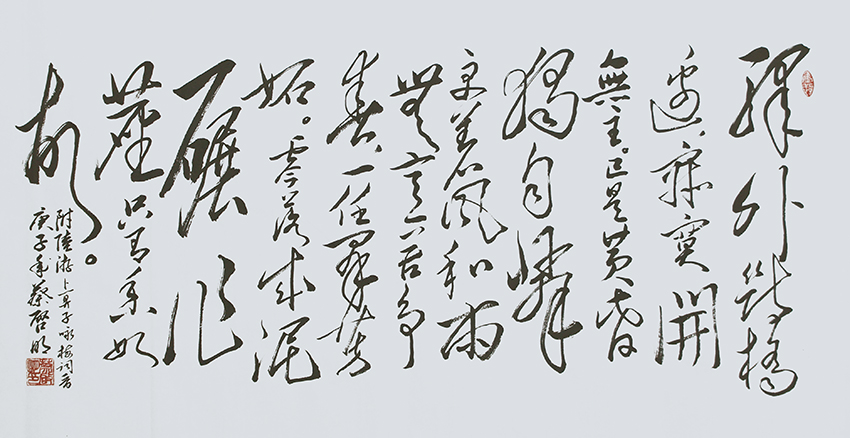 驛外斷橋
邊、寂寞開
無主。已是黃昏
獨自愁
更著風和雨
無意苦爭
春、一任羣芳
妬。零落成泥
碾作
塵只有香如
故。
附陸游卜算子咏梅词
庚子年蔡啓明